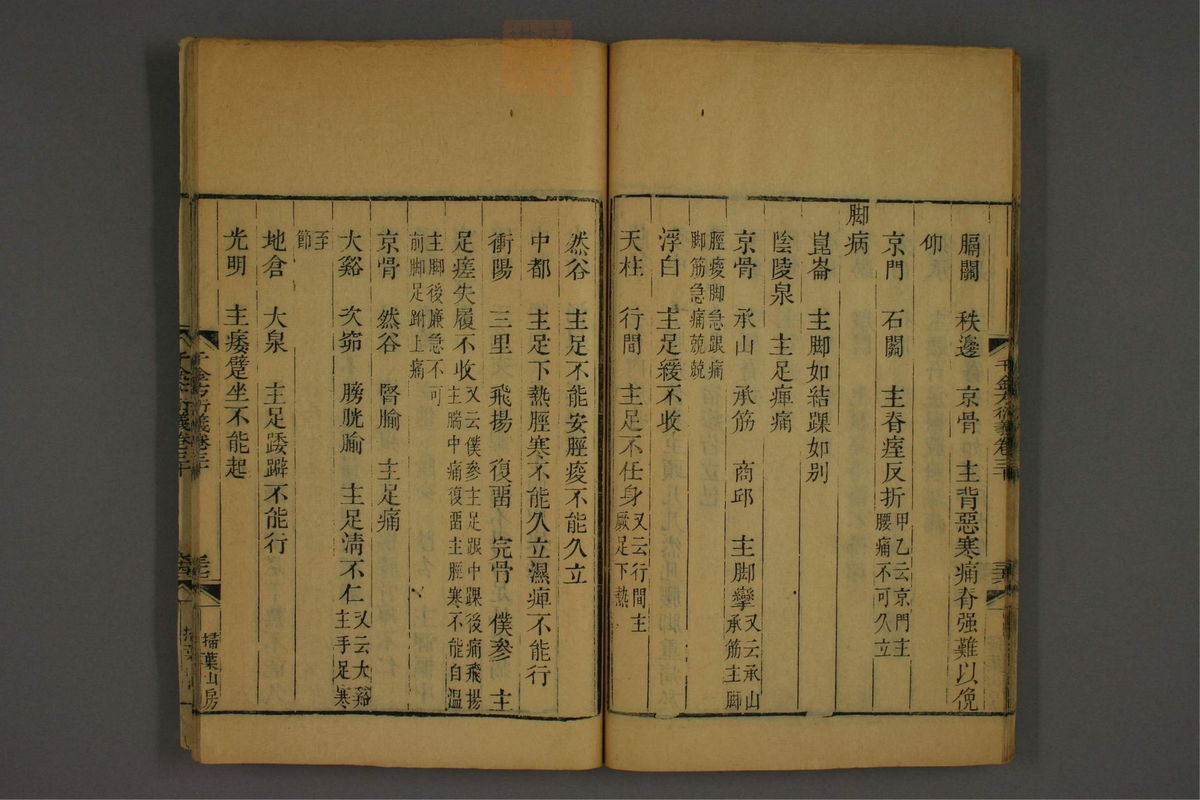 膈關　秩邊　京骨　主背惡寒痛脊强難以俛
仰
京門　石關　主脊痓反折甲乙云京門主腰痛不可久立
脚病
崑崙　主脚如結踝如别
陰陵泉　主足痺痛
京骨　承山　承筋　商邱　主脚攣又云承山承筋主脚
脛痠脚急跟痛脚筋急痛兢兢
浮白　主足緩不收
天柱　行間　主足不任身又云行間主厥足下熱
然谷　主足不能安脛痠不能久立
中都　主足下熱脛寒不能久立濕痺不能行
衝陽　三里　飛揚　復畱　完骨　僕參　主
足痿失履不收又云僕參主足跟中踝後痛飛揚主腨中痛復畱主脛寒不能自温
主脚後廉急不可前脚足跗上痛
京骨　然谷　腎腧　主足痛
大谿　次窌　膀胱腧　主足淸不仁又云大谿主手足寒
至節
地倉　大泉　主足躄躃不能行
光明　主痿躄坐不能起
千金方衍義卷三十
掃葉山房